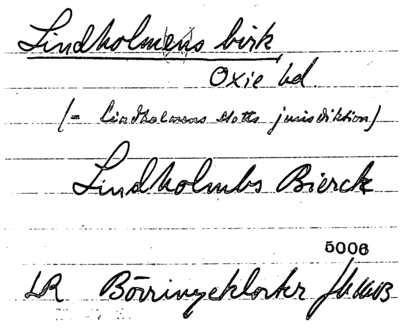 Lindholmens birk
Oxie hd.
(= Lindholmens slotts jurisdiktion)
Lindholmbs Bierck
5006
LR Börringekloster